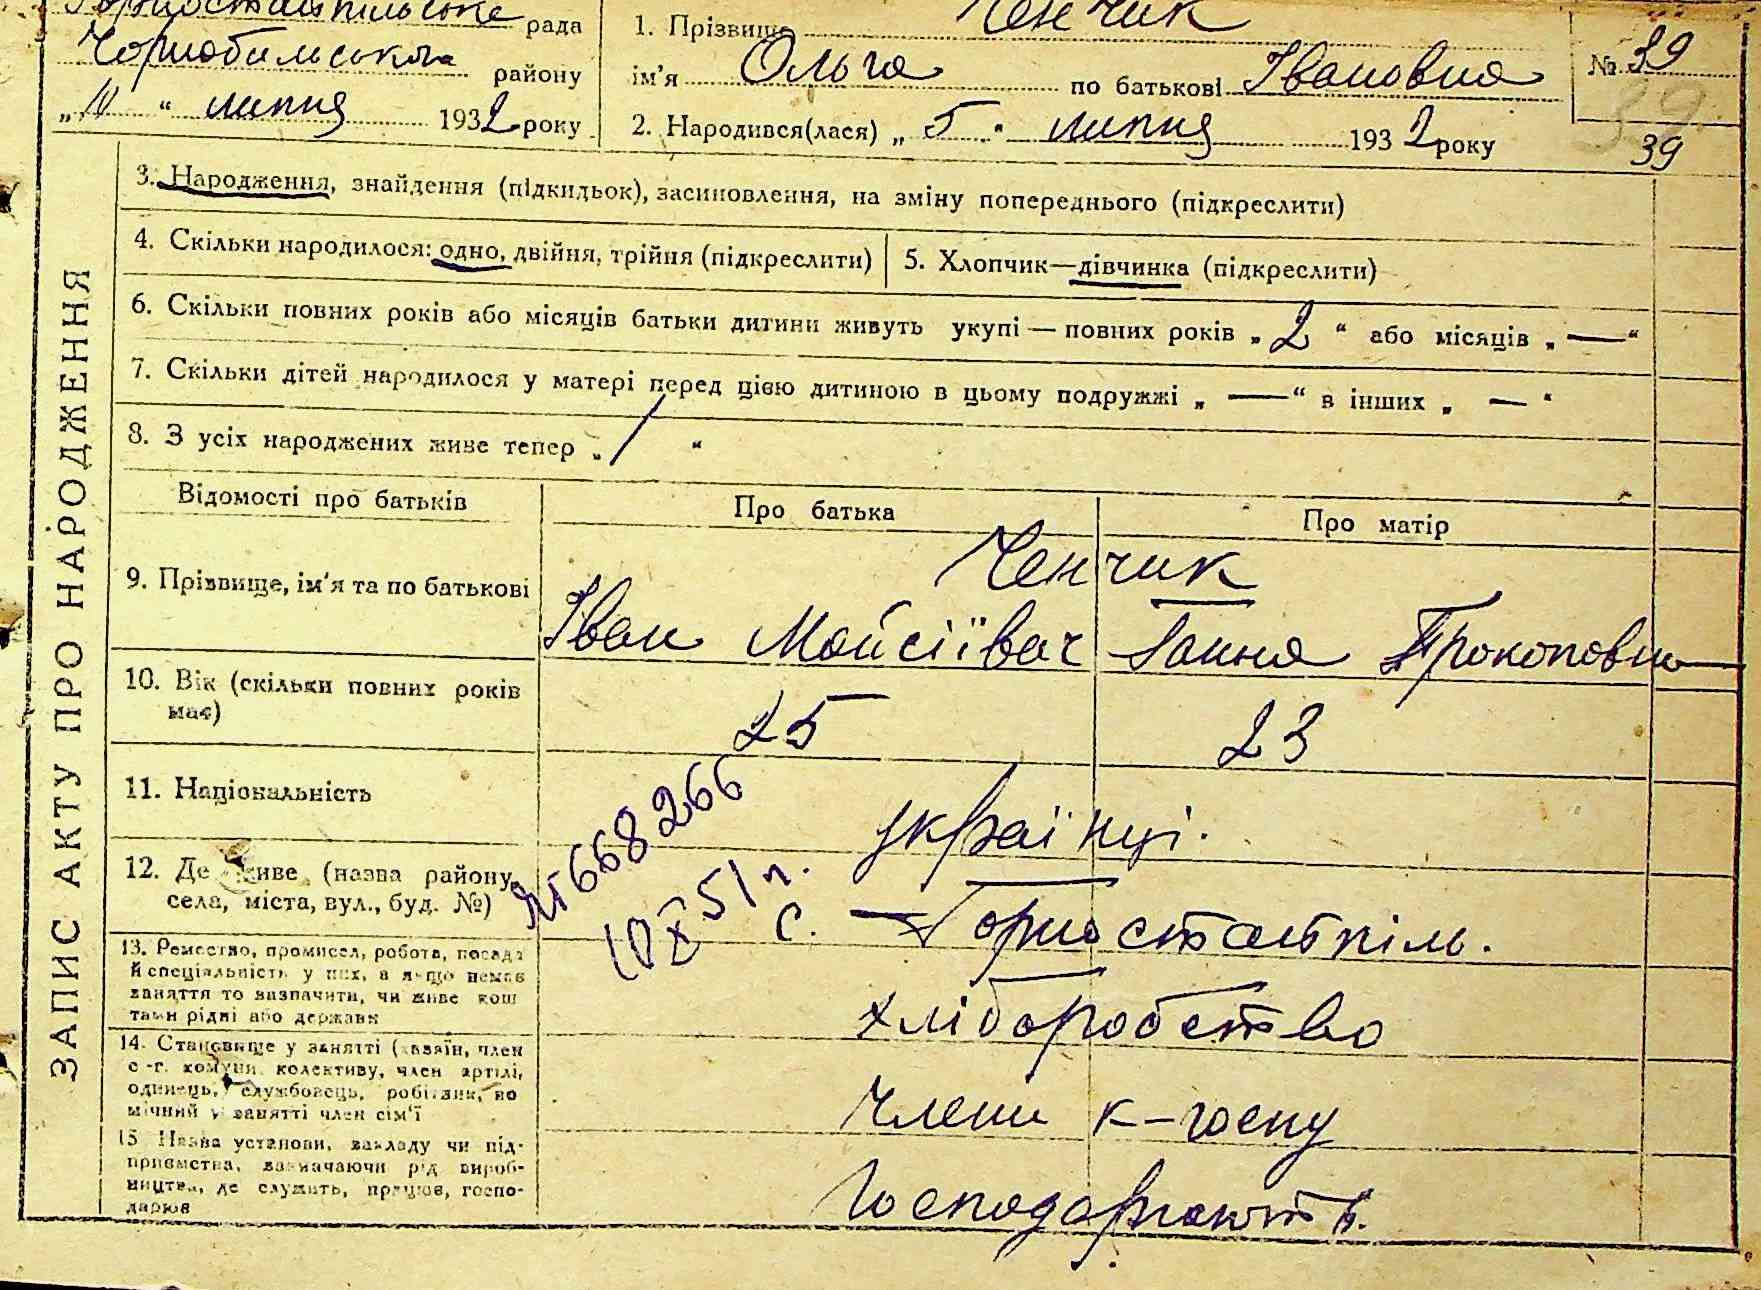 Горностайпільське рада
Чорнобильського району
„ 10 “ липня 1932 року
1. Прізвище Ченчик
ім’я Ольга по батькові Івановна
2. Народився(лася) „ 5 “ липня 1932 року
№ 39
39
39
ЗАПИС АКТУ ПРО НАРОДЖЕННЯ
3. Народження, знайдення (підкидьок), засиновлення, на зміну попереднього (підкреслити)
4. Скільки народилося: одно, двійня, трійня (підкреслити)
5. Хлопчик—дівчинка (підкреслити)
6. Скільки повних років або місяців батьки дитини живуть укупі — повних років „ 2 “ або місяців „ — “
7. Скільки дітей народилося у матері перед цією дитиною в цьому подружжі „ — “ в інших „ — “
8. З усіх народжених живе тепер „ / “
Відомості про батьків
Про батька
Про матір
9. Прізвище, ім’я та по батькові
Ченчик
Іван Мойсіївач
Ганна Прокоповна
10. Вік (скільки повних років
має)
25
23
11. Національність
українці.
12. Де живе (назва району,
села, міста, вул., буд. №)
с. Горностайпіль.
668266
10 X 51 г.
13. Ремество, промисел, робота, посада
й спеціяльність у них, а якщо немає
заняття то зазначити, чи живе кош
тами рідні або держави
хліборобство
14. Становище у занятті (хазяїн, член
с.-г. комуни, колективу, член артілі,
одинець, службовець, робітник, по
мічний у занятті член сім’ї
члени к-госпу
15. Назва установи, закладу чи під-
приємства, зазначаючи рід вироб-
ництва, де служить, працює, госпо-
дарює
Господарюють.